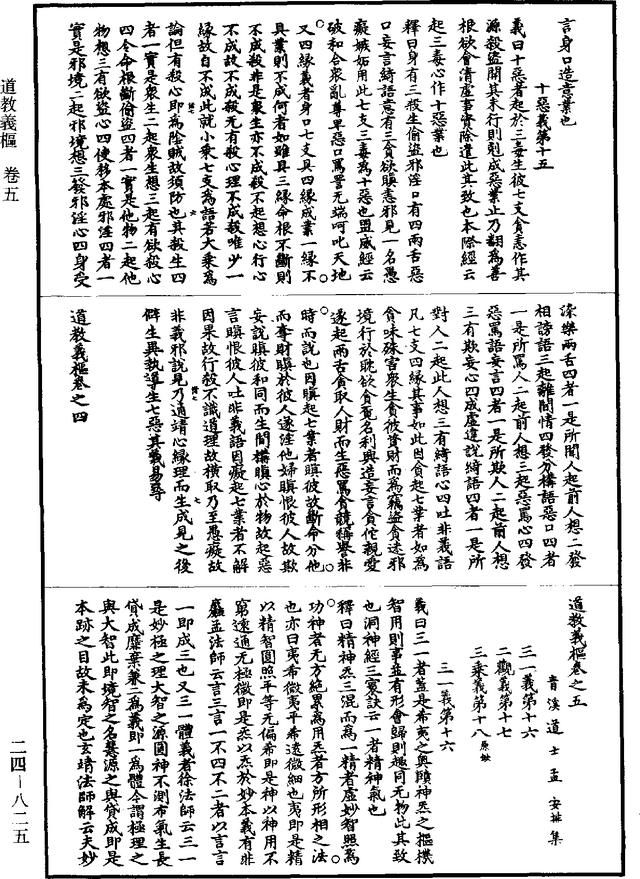 言身口造意業也
十惡義第十五
義曰十惡者起於三毒生彼七支貪恚作其
源殺盜開其末行則剋成惡業止乃翻為善
根欲會清虛事資除遣此其致也本際經云
起三毒心作十惡業也
釋曰身有三殺生偷盜邪淫口有四兩舌惡
口妄言綺語意有三貪欲瞋恚邪見一名愚
癡嫉妬用此七支三毒為十惡也盟威經云
破和合衆亂尊卑惡口罵詈无端呵叱天地
又四緣義者身口七支具四緣成業一緣不
具業則不成何者如雖具三緣命根不斷則
不成殺非是衆生亦不成殺不起想心行心
不成故不成殺无有殺心理不成殺唯少一
緣故自不成此就小乘七支為語若大乘為
論但有殺心即為陰賊故須防也具殺生四
者一實是衆生二起衆生想三起有欲殺心
四令命根斷偷盜四者一實是他物二起他
物想三有欲盜心四使移本處邪淫四者一
實是邪境二起邪境想三發邪淫心四身受
染樂兩舌四者一是所間人起前人想二發
相謗語三起離間情四發分構語惡口四者
一是所罵人二起前人想三起惡罵心四發
惡罵語妄言四者一是所欺人二起前人想
三有欺妄心四成虛違說綺語四者一是所
對人二起此人想三有綺語心四吐非義語
凡七支四緣其事如此因貪起七業者如為
貪味殊害衆生貪彼貨財而為竊盜貪述邪
境行於耽欲貪覓名利興造妄言貪佗親愛
遂起兩舌貪取人財而生惡罵貪競稱譽非
時而說也因瞋起七業者瞋彼故斷命分他
而奪財瞋於彼人遂淫他婦瞋恨彼人故欺
妄說瞋彼和同而生間構瞋心於物故起惡
言瞋恨彼人吐非義語因癡起七業者不解
因果故行殺不識道理故橫取乃至愚癡故
非義邪說見乃通靖心緣理而生成見之後
僻生異執導生七惡其義易尋
道教義樞卷之四
道教義樞卷之五
青溪道士孟安排集
三一義第十六
二觀義第十七
三乘義第十八原缺
三一義第十六
義曰三一者蓋是希夷之奧賾神炁之樞機
智用則事並有形會歸則趣同无物此其致
也洞神經三寰訣云一者精神氣也
釋曰精神炁三混而為一精者虛妙智照為
功神者无方絕累為用炁者方所形相之法
也亦曰夷希微夷平希遠微細也夷即是精
以精智圓照平等无偏希即是神以神用不
窮遠通无極微即是炁以炁於妙本義有非
麤孟法師云言三言一不四不二者以言言
一即成三也又三一體義者徐法師云三一
是妙極之理大智之源圓神不測布氣生長
貸成靡棄兼二為義即一為體今謂極理之
與大智此即境智之名慧源之與貸成即是
本跡之目故未為定也玄靖法師解云夫妙
道教義樞　卷五
二四—八二五